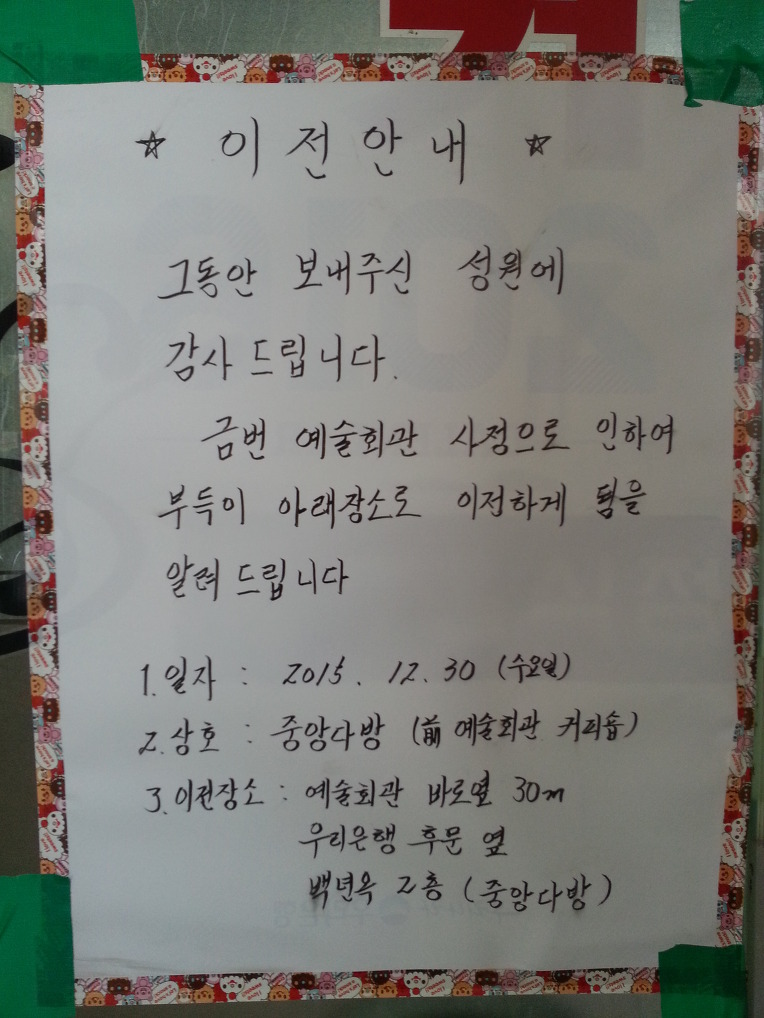 ☆ 이전안내 ☆
그동안 보내주신 성원에
감사드립니다.
금번 예술회관 사정으로 인하여
부득이 아래장소로 이전하게 됨을
알려드립니다
1. 일자 : 2015. 12. 30 (수요일)
2. 상호 : 중앙다방 (前 예술회관 커피숍)
3. 이전장소 : 예술회관 바로옆 30m
우리은행 후문 옆
백년옥 2층 (중앙다방)